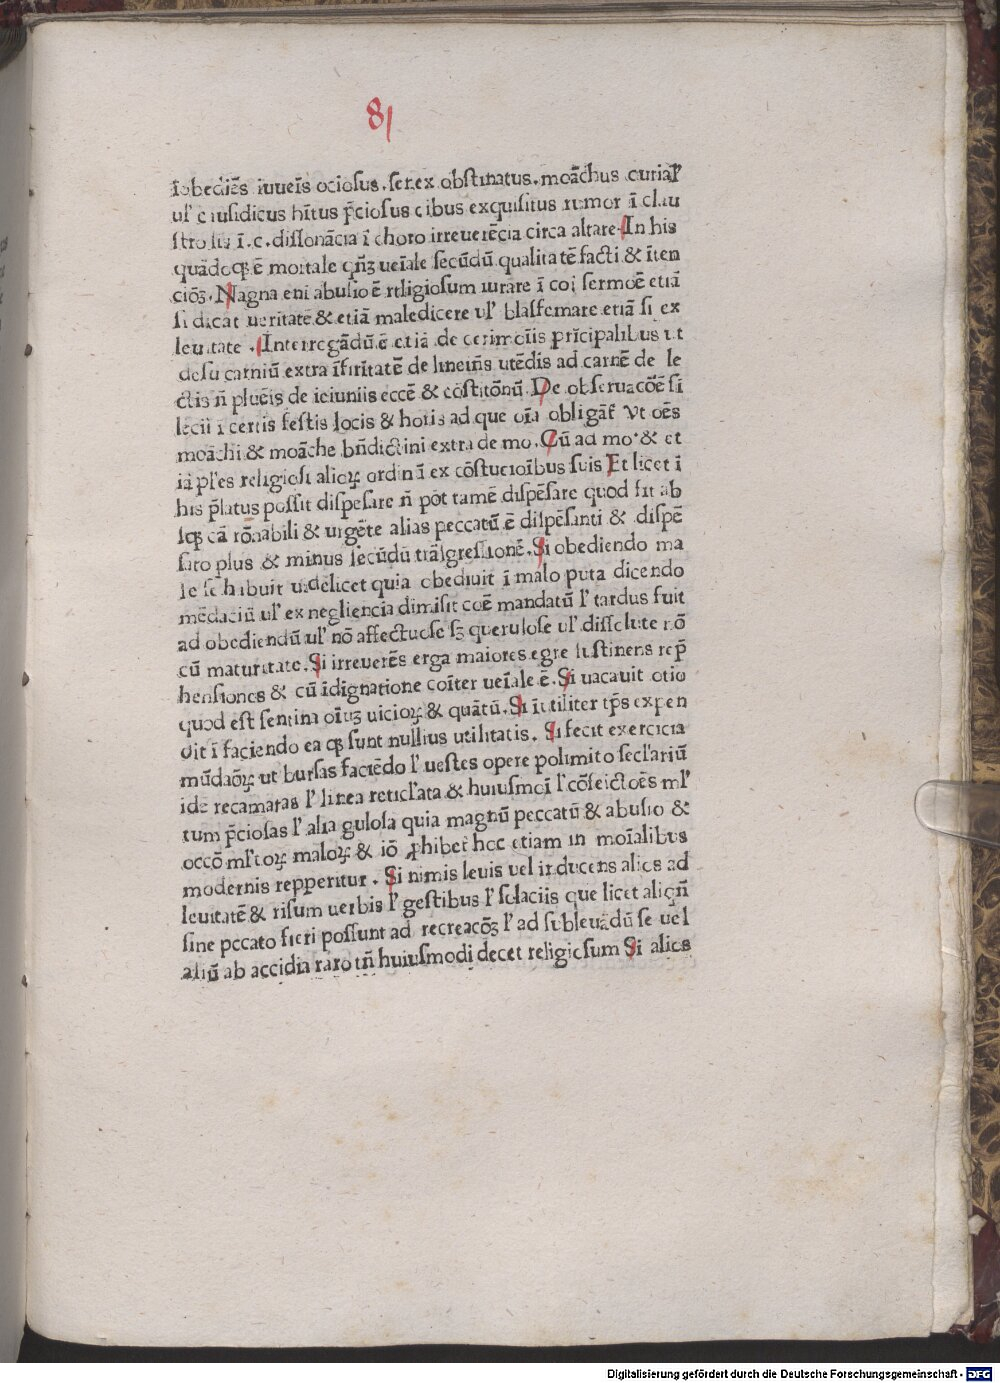 81
īobediēs iuueīs ociosus. senex obstinatus. moāchus curialˀ
ulˀ causidicus hītus p̄ciosus cibus exquisitus rumor ī clau
stro lis ī.c. dissonācia ī choro irreuerēcia circa altare. In his
quādoqꝫ ē mortale qn̄ꝫ ueīale secūdū qualitatē facti & īten
ciōꝫ. Magna eni abusio ē religiosum iurare ī coī sermoē etiā
si dicat ueritatē & etiā maledicere ulˀ blasfemare etiā si ex
leuitate. Interrogādū ē etiā de cerimoīis prīcipalibus ut
de su carniū extra īfirītatē de lineiīs utēdis ad carnē de le
ctis n̄ plueīs de ieiuniis eccē & cōstitōnū. De obseruacōē si
lecii ī certis festis locis & horis ad que oīa obligāt˞ Vt oēs
moāchi & moāche bn̄dictini extra de mo. Cū ad mo. & et
iā plˀes religiosi alioꝝ ordinū ex cōstucioībus suis Et licet ī
his p̄latus possit dispēsare n̄ pōt tamē dispēsare quod sit ab
sqꝫ cā rōnabili & urgēte alias peccatū ē dispēsanti & dispē
sato plus & minus secūdū trāsgressionē. Si obediendo ma
le se habuit uidelicet quia obediuit ī malo puta dicendo
mēdaciū ulˀ ex negliencia dimisit coē mandatū lˀ tardus fuit
ad obediendū ulˀ nō affectuose sꝫ querulose ulˀ dissolute nō
cū maturitate. Si irreuerēs erga maiores egre sustinens rep̄
hensiones & cū īdignatione coīter ueīale ē. Si uacauit otio
quod est sentina oīuꝫ uicioꝝ & quātū. Si īutiliter tp̄s expen
dit ī faciendo ea qꝫ sunt nullius utilitatis. Si fecit exercicia
mūdaōꝝ ut bursas faciēdo lˀ uestes opere polimito seclˀariū
ide recamatas lˀ linea reticlˀata & huiusmoī lˀ cōfeictoēs mlˀ
tum p̄ciosas lˀ alia gulosa quia magnū peccatū & abusio &
occō mlˀtoꝝ maloꝝ & iō ꝓhibet hoc etiam in moīalibus
modernis repperitur. Si nimis leuis uel inducens alios ad
leuitatē & risum uerbis lˀ gestibus lˀ solaciis que licet aliqn̄
sine pccato fieri possunt ad recreacōꝫ lˀ ad subleuādū se uel
aliū ab accidia raro tn̄ huiusmodi decet religiosum Si alios
Digitalisierung gefördert durch die Deutsche Forschungsgemeinschaft - DFG